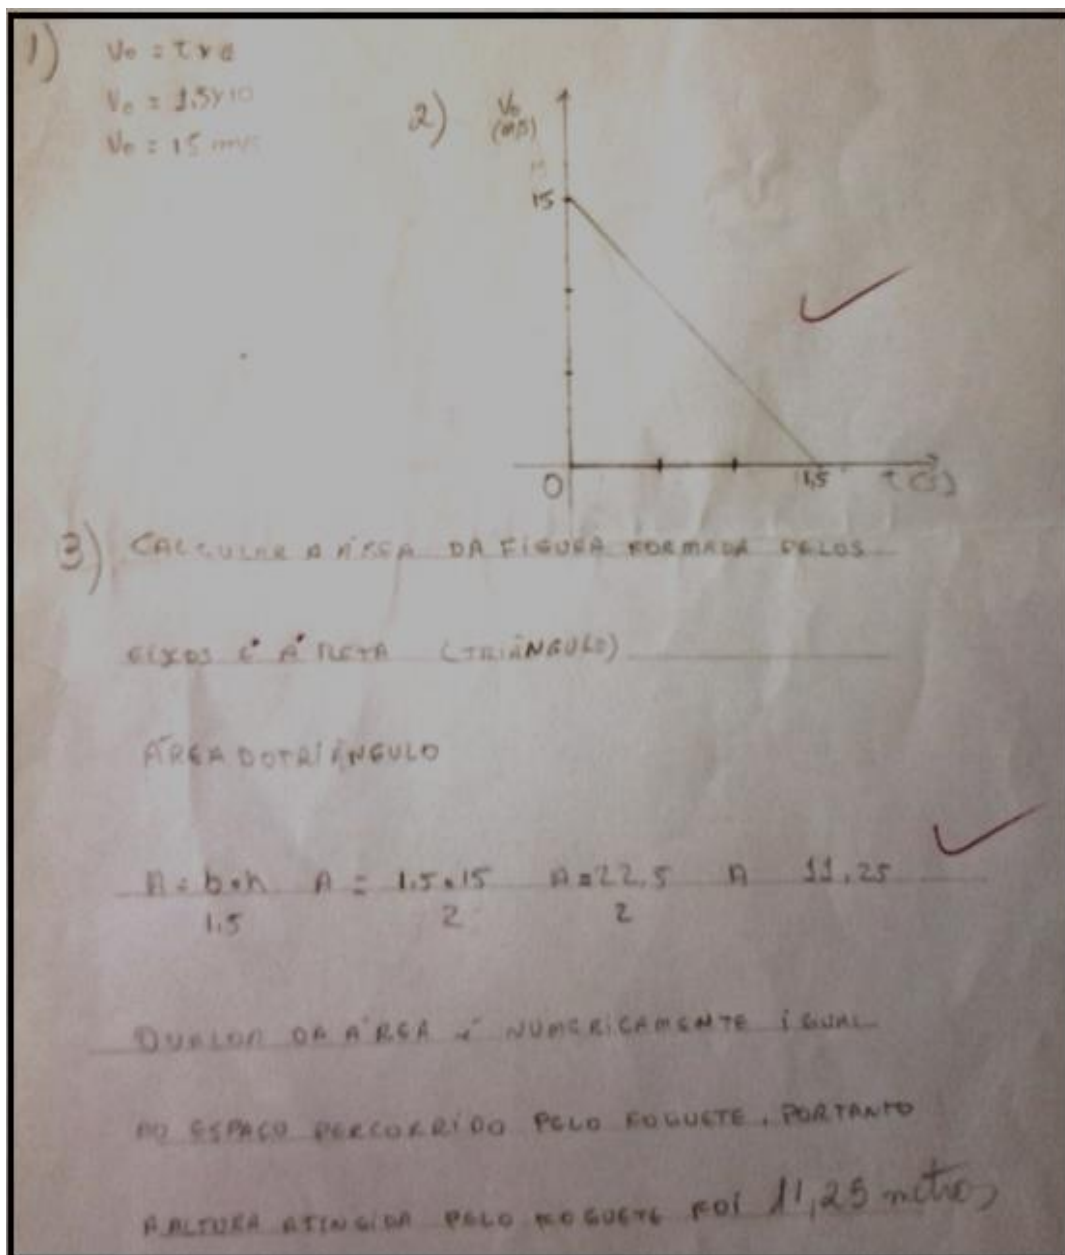 1)
V₀ = t x a
V₀ = 1,5 x 10
V₀ = 15 m/s
2)
V₀
(m/s)
15
0
1,5
t(s)
3) CALCULAR A ÁREA DA FIGURA FORMADA PELOS
EIXOS E A RETA (TRIÂNGULO)
ÁREA DO TRIÂNGULO
A = b.h A = 1,5.15 A = 22,5 A 11,25
1,5 2 2
O VALOR DA ÁREA É NUMERICAMENTE IGUAL
AO ESPAÇO PERCORRIDO PELO FOGUETE, PORTANTO
A ALTURA ATINGIDA PELO FOGUETE FOI 11,25 metros